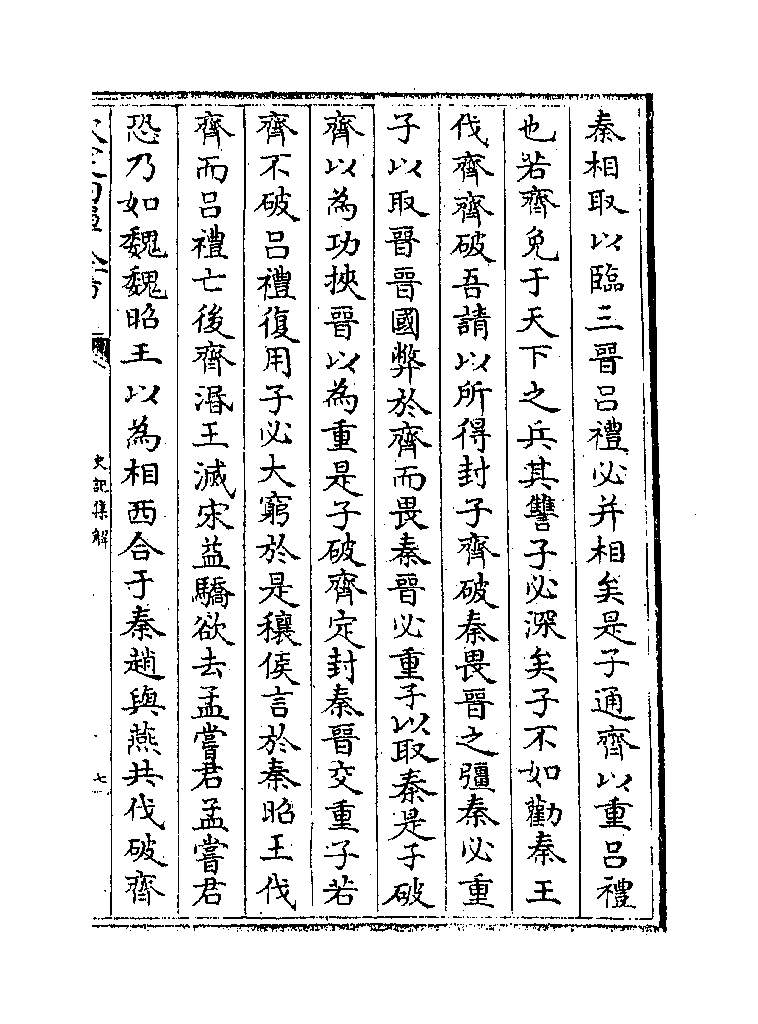 秦相取以臨三晉呂禮必并相矣是子通齊以重呂禮
也若齊免于天下之兵其讐子必深矣子不如勸秦王
伐齊齊破吾請以所得封子齊破秦畏晉之彊秦必重
子以取晉晉國弊於齊而畏秦晉必重子以取秦是子破
齊以為功挾晉以為重是子破齊定封秦晉交重子若
齊不破呂禮復用子必大窮於是穰侯言於秦昭王伐
齊而呂禮亡後齊湣王滅宋益驕欲去孟嘗君孟嘗君
恐乃如魏魏昭王以為相西合于秦趙與燕共伐破齊
史記集解
七